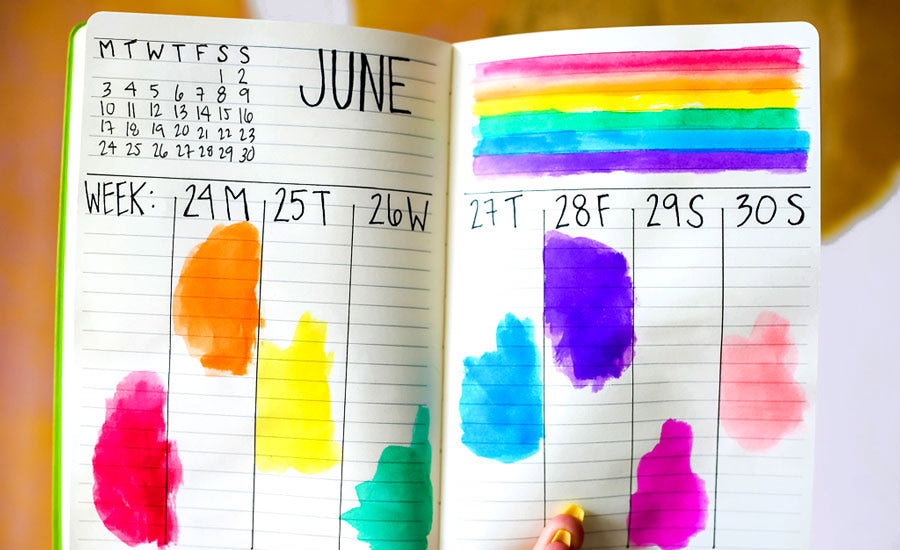 M T W T F S S
JUNE
1 2
3 4 5 6 7 8 9
10 11 12 13 14 15 16
17 18 19 20 21 22 23
24 25 26 27 28 29 30
WEEK: 24 M 25 T 26 W
27 T 28 F 29 S 30 S